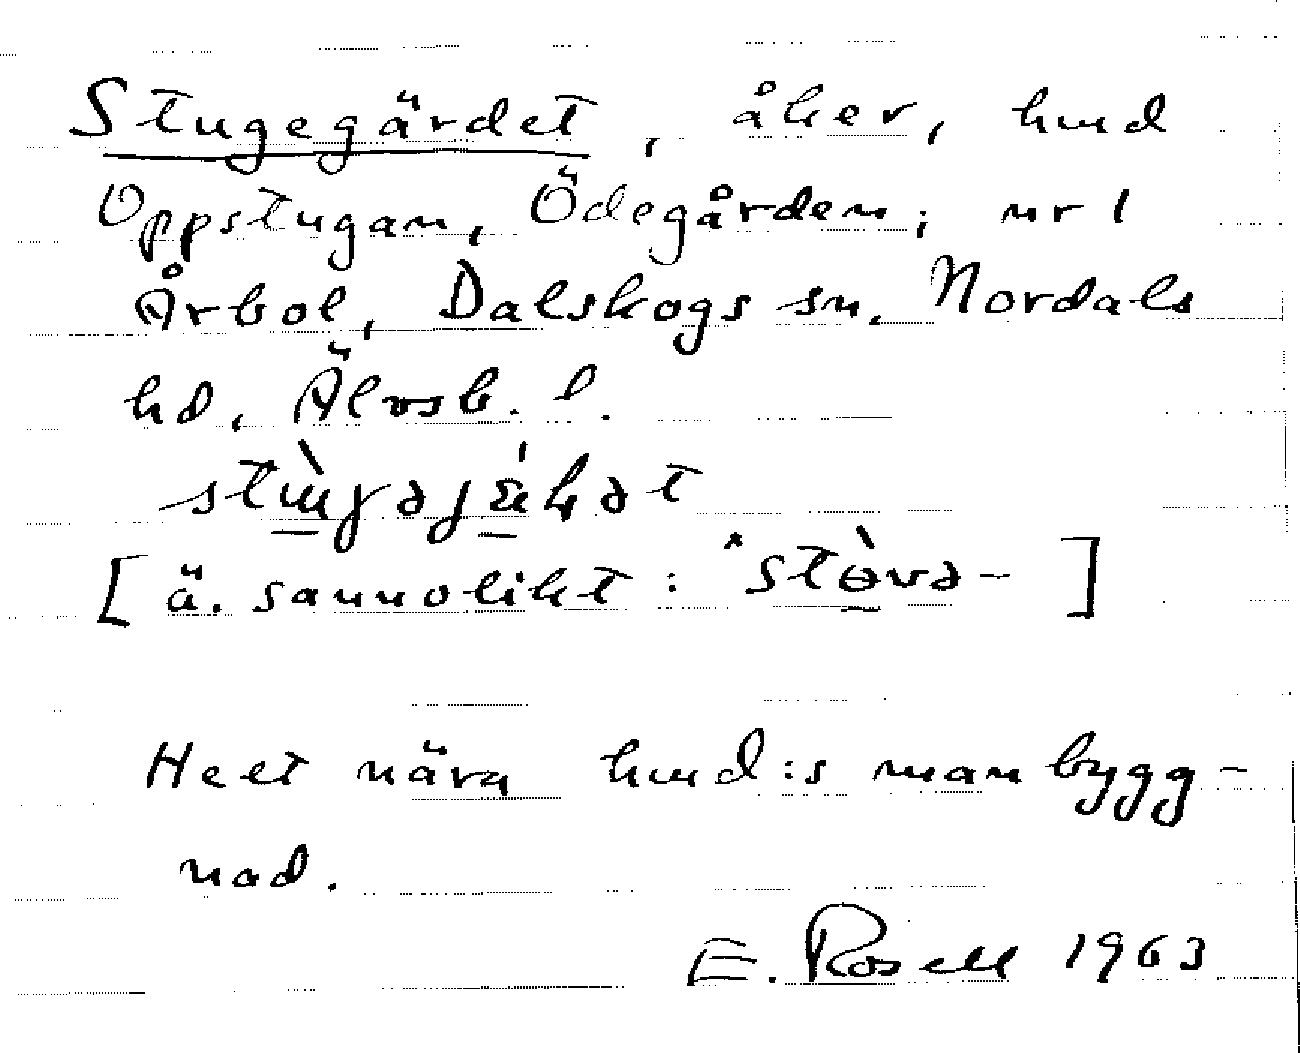 Stugegärdet, åker, hmd
Oppstugan, Ödegården, nr 1
Årbol, Dalskogs sn. Nordals
hd, Älvsb. l.
[ä. sannolikt: *stòvə- ]
Helt nära hmd:s manbygg-
nad.
E. Rosell 1963